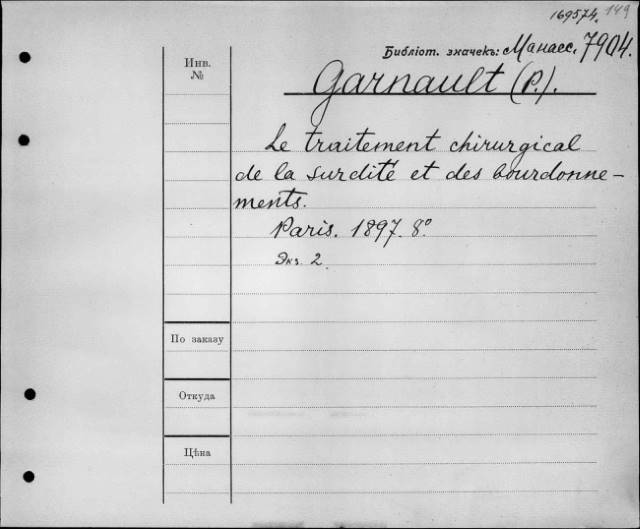 169574. 149
Библіот. значекъ: Манасс. 7904.
Инв.
№
Garnault (P.).
Le traitement chirurgical
de la surdité et des bourdonne-
ments.
Paris. 1897. 8°
Экз. 2.
По заказу
Откуда
Цѣна